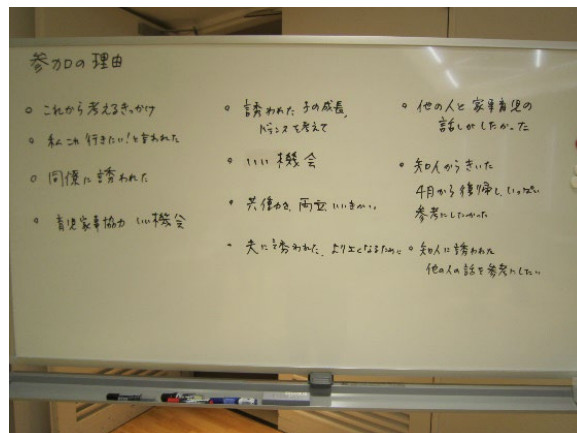 参加の理由
○ これから考えるきっかけ
○ 私これ行きたい!と言われた
○ 同僚に誘われた
○ 育児家事協力 いい機会
○ 誘われた 子の成長、
バランスを考えて
○ いい機会
○ 共働き、両立
○ 夫に誘われた、より良くなるために
○ 他の人と家事育児の
話しがしたかった
○ 知人からきいた
4月から復帰し、
参考にしたかった
○ 知人に誘われた
他の人の話を参考にしたい